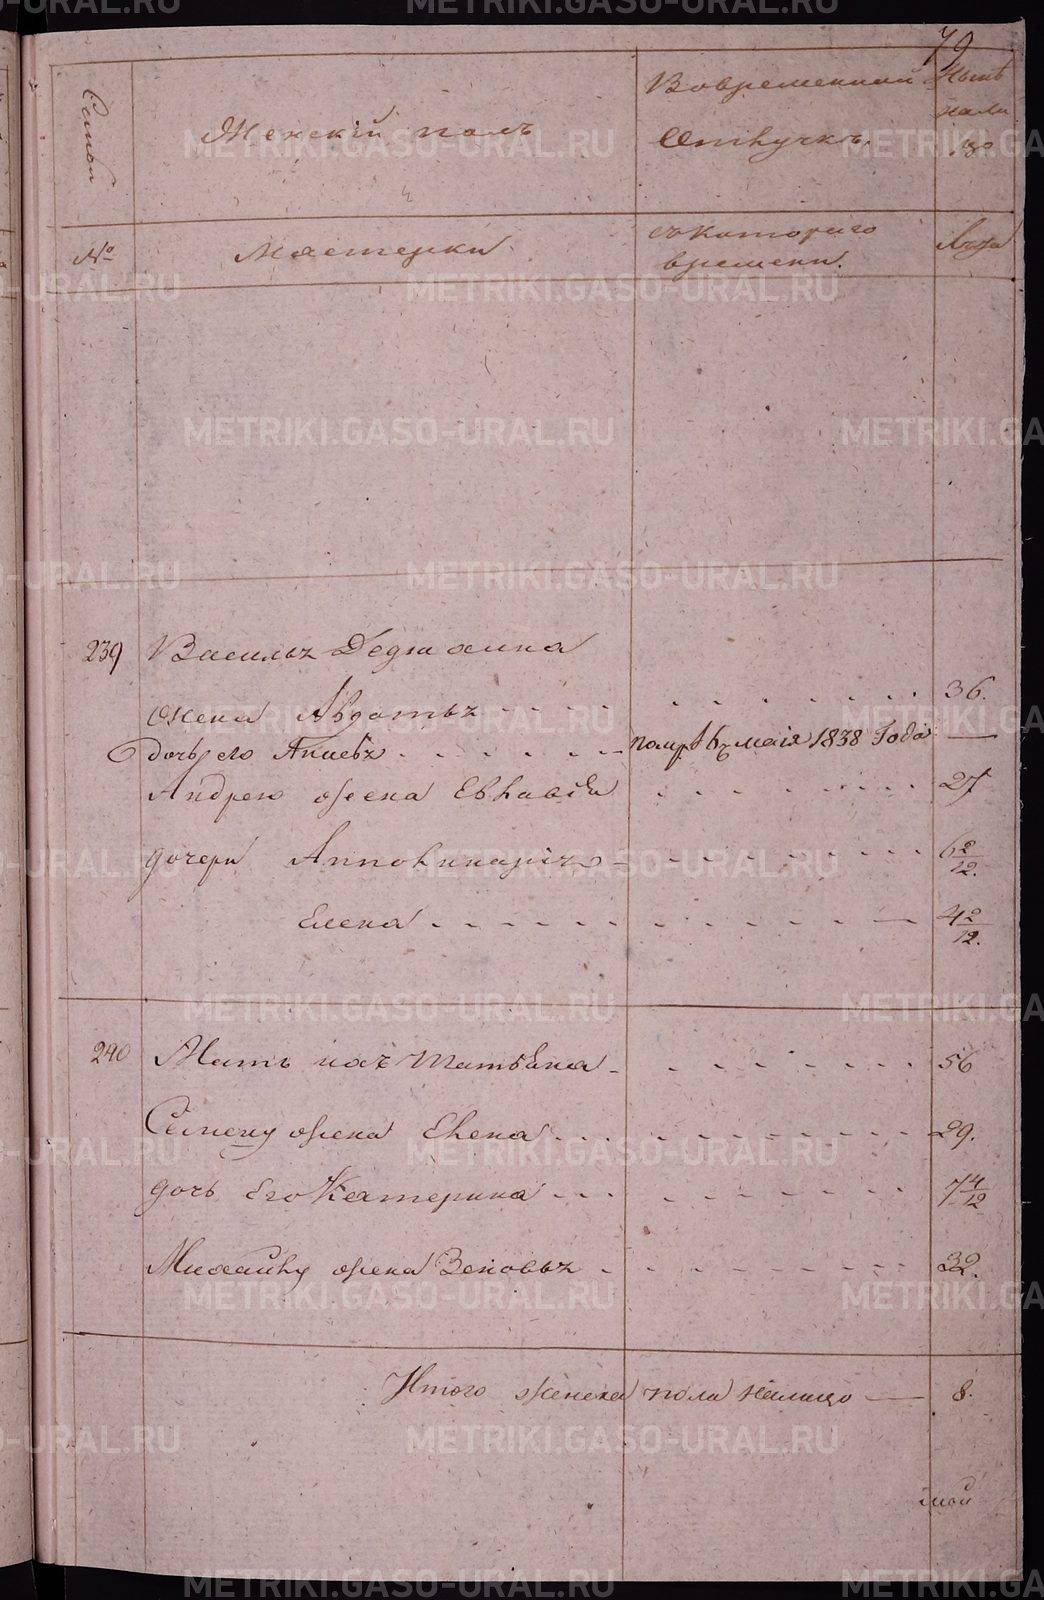 79
Семьи
Женскій полъ
Вовременной
Отлучкѣ.
Нынѣ
нали
цо
№
Мастерки
съкотораго
времени.
Лѣта
239 Василья Федго жена
жена Авдотья 36.
дочь его Агнея помр. 6 маія 1838 Года —
Андрею жена Евлавія 27
дочери Апполинарія 6 2/12.
Елена 4 2/12.
240 Мать ихъ Татьяна 56
Семену жена Елена 29.
дочь Его Катерина 7 4/12
Михайлу жена Зеновья 32.
Итого женска пола Налицо — 8.
мой
METRIKI.GASO-URAL.RU